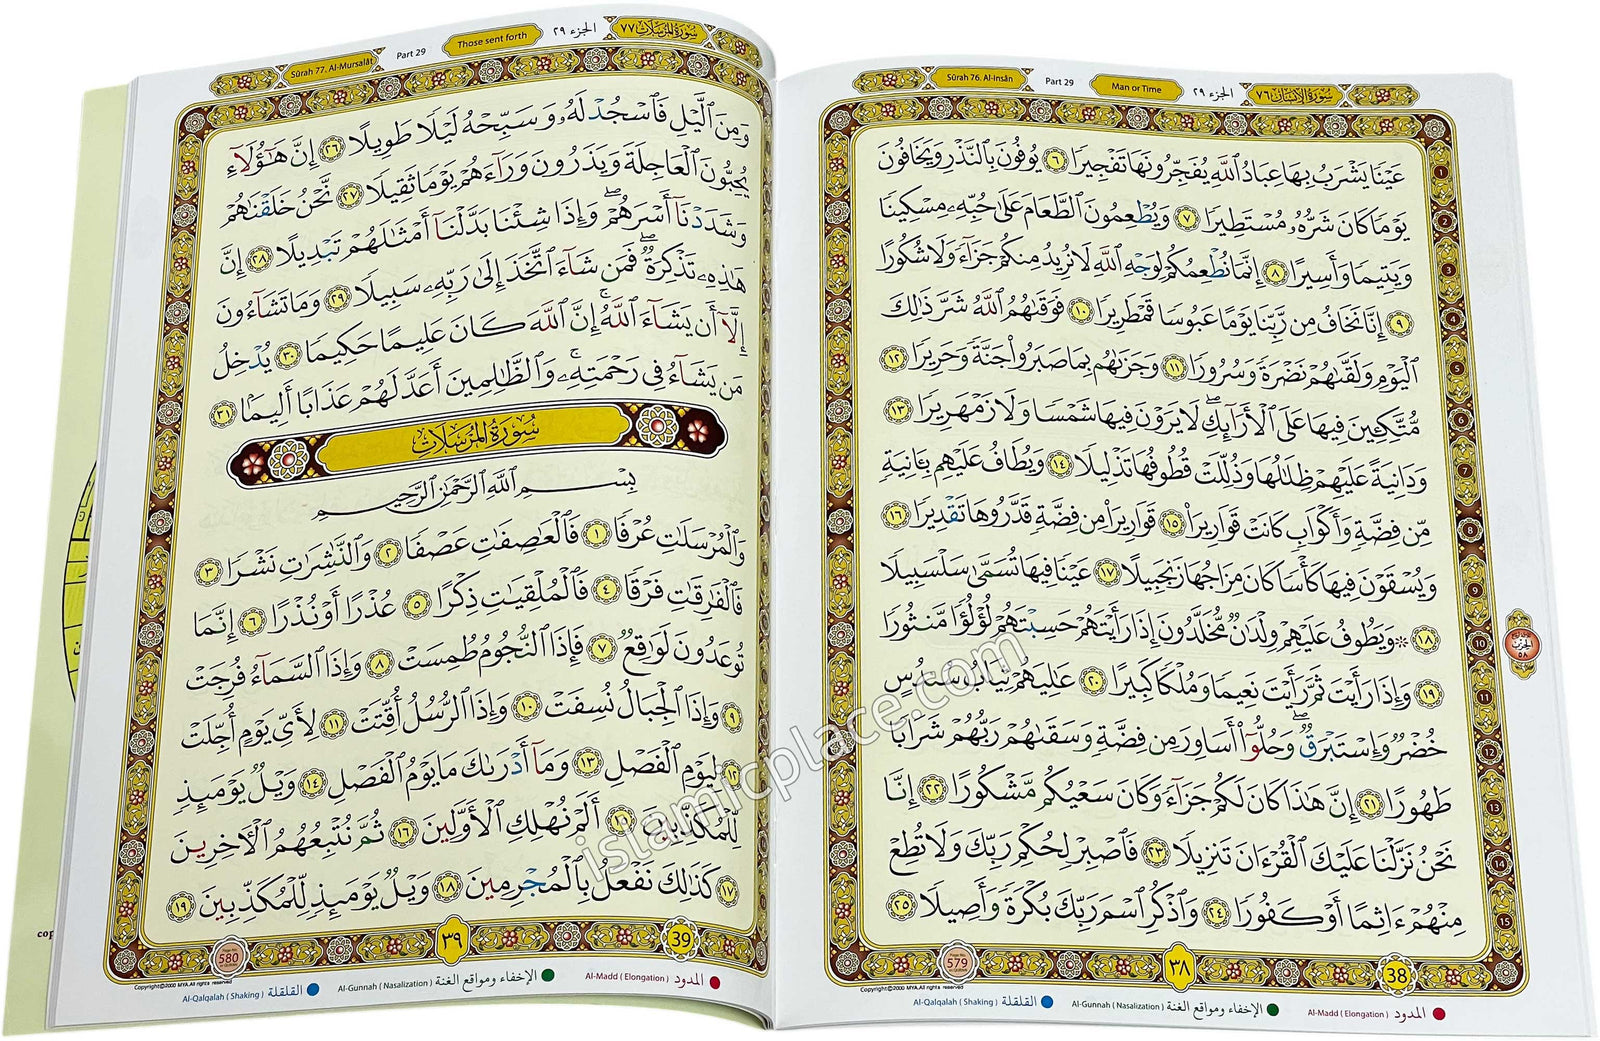 Sūrah 76. Al-Insân
Part 29
Man or Time
الجزء ٢٩
سورة الإنسان ٧٦
عَيْنًا يَشْرَبُ بِهَا عِبَادُ اللَّهِ يُفَجِّرُونَهَا تَفْجِيرًا ٦ يُوفُونَ بِالنَّذْرِ وَيَخَافُونَ
يَوْمًا كَانَ شَرُّهُ مُسْتَطِيرًا ٧ وَيُطْعِمُونَ الطَّعَامَ عَلَىٰ حُبِّهِ مِسْكِينًا
وَيَتِيمًا وَأَسِيرًا ٨ إِنَّمَا نُطْعِمُكُمْ لِوَجْهِ اللَّهِ لَا نُرِيدُ مِنكُمْ جَزَاءً وَلَا شُكُورًا
٩ إِنَّا نَخَافُ مِن رَّبِّنَا يَوْمًا عَبُوسًا قَمْطَرِيرًا ١٠ فَوَقَاهُمُ اللَّهُ شَرَّ ذَٰلِكَ
الْيَوْمِ وَلَقَّاهُمْ نَضْرَةً وَسُرُورًا ١١ وَجَزَاهُم بِمَا صَبَرُوا جَنَّةً وَحَرِيرًا ١٢
مُّتَّكِئِينَ فِيهَا عَلَى الْأَرَائِكِ ۖ لَا يَرَوْنَ فِيهَا شَمْسًا وَلَا زَمْهَرِيرًا ١٣
وَدَانِيَةً عَلَيْهِمْ ظِلَالُهَا وَذُلِّلَتْ قُطُوفُهَا تَذْلِيلًا ١٤ وَيُطَافُ عَلَيْهِم بِآنِيَةٍ
مِّن فِضَّةٍ وَأَكْوَابٍ كَانَتْ قَوَارِيرَا ١٥ قَوَارِيرَا مِن فِضَّةٍ قَدَّرُوهَا تَقْدِيرًا ١٦
وَيُسْقَوْنَ فِيهَا كَأْسًا كَانَ مِزَاجُهَا زَنجَبِيلًا ١٧ عَيْنًا فِيهَا تُسَمَّىٰ سَلْسَبِيلًا
١٨ ۞ وَيَطُوفُ عَلَيْهِمْ وِلْدَانٌ مُّخَلَّدُونَ إِذَا رَأَيْتَهُمْ حَسِبْتَهُمْ لُؤْلُؤًا مَّنثُورًا
١٩ وَإِذَا رَأَيْتَ ثَمَّ رَأَيْتَ نَعِيمًا وَمُلْكًا كَبِيرًا ٢٠ عَالِيَهُمْ ثِيَابُ سُندُسٍ
خُضْرٌ وَإِسْتَبْرَقٌ ۖ وَحُلُّوا أَسَاوِرَ مِن فِضَّةٍ وَسَقَاهُمْ رَبُّهُمْ شَرَابًا
طَهُورًا ٢١ إِنَّ هَٰذَا كَانَ لَكُمْ جَزَاءً وَكَانَ سَعْيُكُم مَّشْكُورًا ٢٢ إِنَّا
نَحْنُ نَزَّلْنَا عَلَيْكَ الْقُرْآنَ تَنزِيلًا ٢٣ فَاصْبِرْ لِحُكْمِ رَبِّكَ وَلَا تُطِعْ
مِنْهُمْ آثِمًا أَوْ كَفُورًا ٢٤ وَاذْكُرِ اسْمَ رَبِّكَ بُكْرَةً وَأَصِيلًا ٢٥
1
2
3
4
5
6
7
8
9
10
11
12
13
14
15
579
٣٨
38
Copyright©2000 MYA.All rights reserved
Al-Qalqalah ( Shaking ) القلقلة
Al-Gunnah ( Nasalization ) الإخفاء ومواقع الغنة
Al-Madd ( Elongation ) المدود
Sūrah 77. Al-Mursalât
Part 29
Those sent forth
الجزء ٢٩
سورة المرسلات ٧٧
وَمِنَ اللَّيْلِ فَاسْجُدْ لَهُ وَسَبِّحْهُ لَيْلًا طَوِيلًا ٢٦ إِنَّ هَٰؤُلَاءِ
يُحِبُّونَ الْعَاجِلَةَ وَيَذَرُونَ وَرَاءَهُمْ يَوْمًا ثَقِيلًا ٢٧ نَّحْنُ خَلَقْنَاهُمْ
وَشَدَدْنَا أَسْرَهُمْ ۖ وَإِذَا شِئْنَا بَدَّلْنَا أَمْثَالَهُمْ تَبْدِيلًا ٢٨ إِنَّ
هَٰذِهِ تَذْكِرَةٌ ۖ فَمَن شَاءَ اتَّخَذَ إِلَىٰ رَبِّهِ سَبِيلًا ٢٩ وَمَا تَشَاءُونَ
إِلَّا أَن يَشَاءَ اللَّهُ ۚ إِنَّ اللَّهَ كَانَ عَلِيمًا حَكِيمًا ٣٠ يُدْخِلُ
مَن يَشَاءُ فِي رَحْمَتِهِ ۚ وَالظَّالِمِينَ أَعَدَّ لَهُمْ عَذَابًا أَلِيمًا ٣١
سُورَةُ المُرْسَلَاتِ
بِسْمِ اللَّهِ الرَّحْمَٰنِ الرَّحِيمِ
وَالْمُرْسَلَاتِ عُرْفًا ١ فَالْعَاصِفَاتِ عَصْفًا ٢ وَالنَّاشِرَاتِ نَشْرًا ٣
فَالْفَارِقَاتِ فَرْقًا ٤ فَالْمُلْقِيَاتِ ذِكْرًا ٥ عُذْرًا أَوْ نُذْرًا ٦ إِنَّمَا
تُوعَدُونَ لَوَاقِعٌ ٧ فَإِذَا النُّجُومُ طُمِسَتْ ٨ وَإِذَا السَّمَاءُ فُرِجَتْ
٩ وَإِذَا الْجِبَالُ نُسِفَتْ ١٠ وَإِذَا الرُّسُلُ أُقِّتَتْ ١١ لِأَيِّ يَوْمٍ أُجِّلَتْ
١٢ لِيَوْمِ الْفَصْلِ ١٣ وَمَا أَدْرَاكَ مَا يَوْمُ الْفَصْلِ ١٤ وَيْلٌ يَوْمَئِذٍ
لِّلْمُكَذِّبِينَ ١٥ أَلَمْ نُهْلِكِ الْأَوَّلِينَ ١٦ ثُمَّ نُتْبِعُهُمُ الْآخِرِينَ
١٧ كَذَٰلِكَ نَفْعَلُ بِالْمُجْرِمِينَ ١٨ وَيْلٌ يَوْمَئِذٍ لِّلْمُكَذِّبِينَ ١٩
580
٣٩
39
Copyright©2000 MYA.All rights reserved
Al-Qalqalah ( Shaking ) القلقلة
Al-Gunnah ( Nasalization ) الإخفاء ومواقع الغنة
Al-Madd ( Elongation ) المدود
islamicplace.com